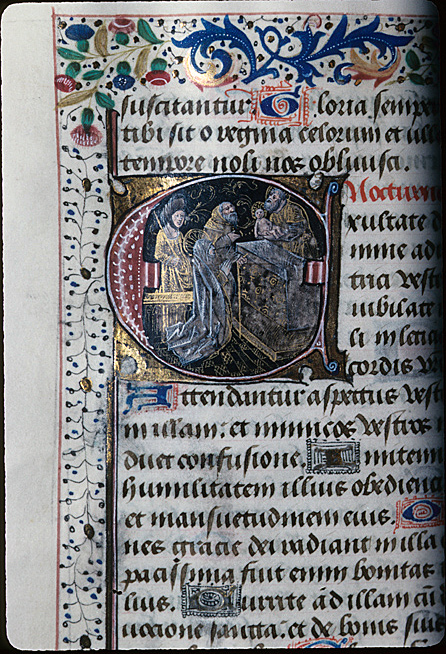 suscitantur Gloria semper
tibi sit o regina celorum et illo
tempore noli nos obliuisci.
Nocturn
Exultate d
mine ad
trici vest
iubilate i
li in leticia
cordis v
Attendantur aspectus vest
in illam: et inimicos vestros i
duet confusione Imitem
humilitatem illius obedien
et mansuetudinem eius. O
nes gracie dei radiant in illa
pacissima fuit enim bonitas
lius. Currite ad illam cu
uccione sancta: et de bonis suis